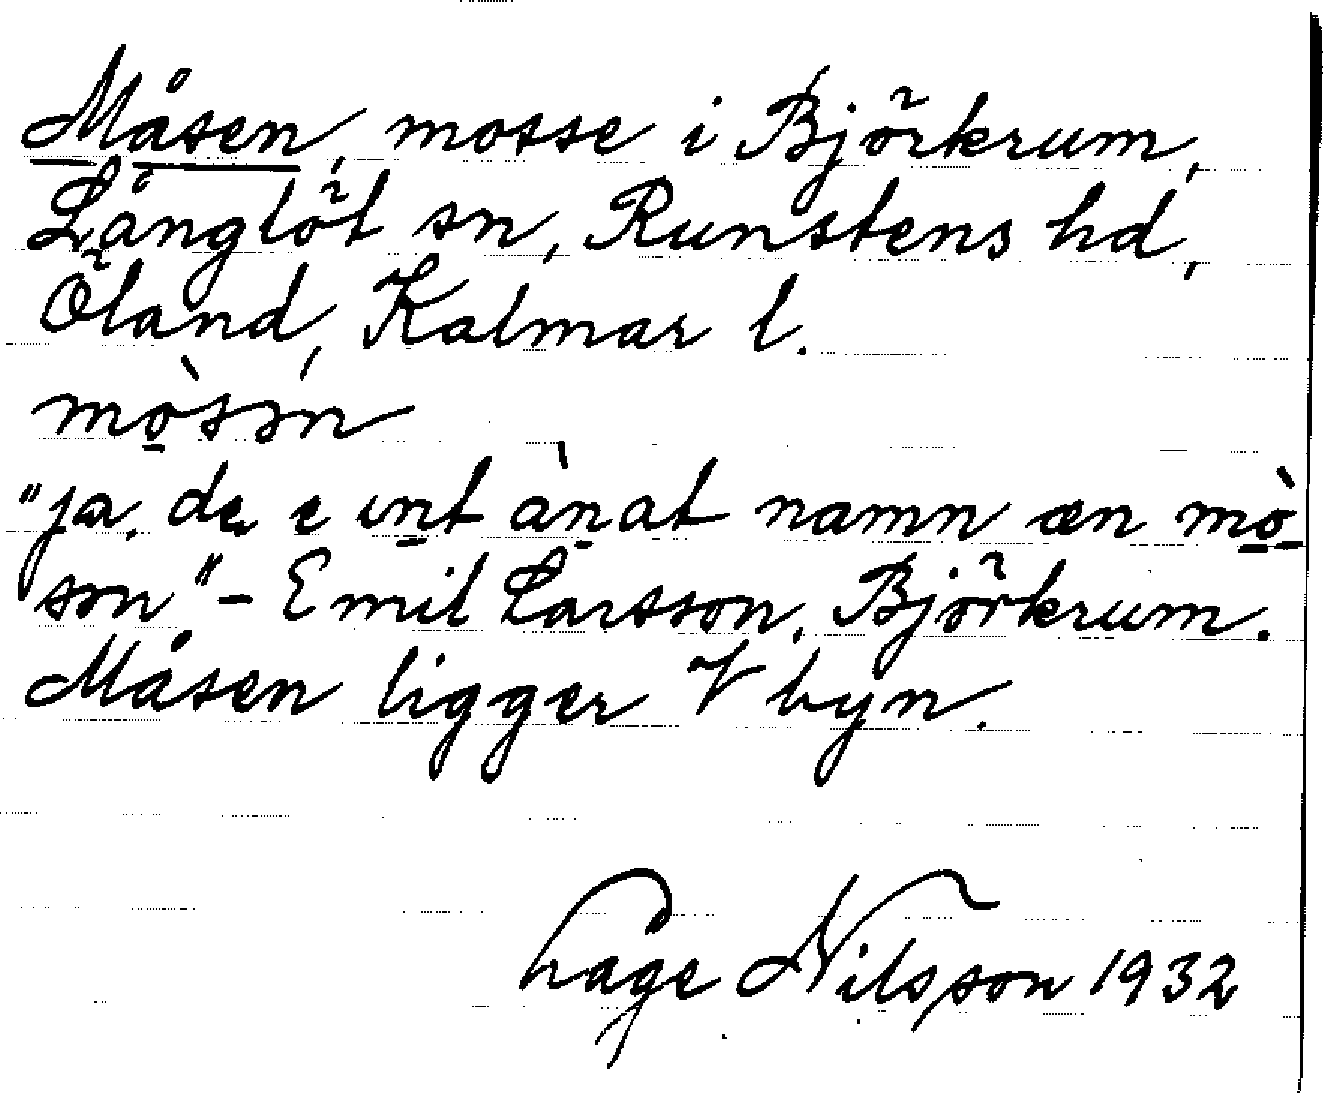 Måsen, mosse i Björkrum,
Långlöt sn, Runstens hd,
Öland, Kalmar l.
mò̠sən
"ja, dɶ e ɩn̠t àn̠at namn æn mò̠-
sən" – Emil Larsson, Björkrum.
Måsen ligger V byn.
Tage Nilsson 1932